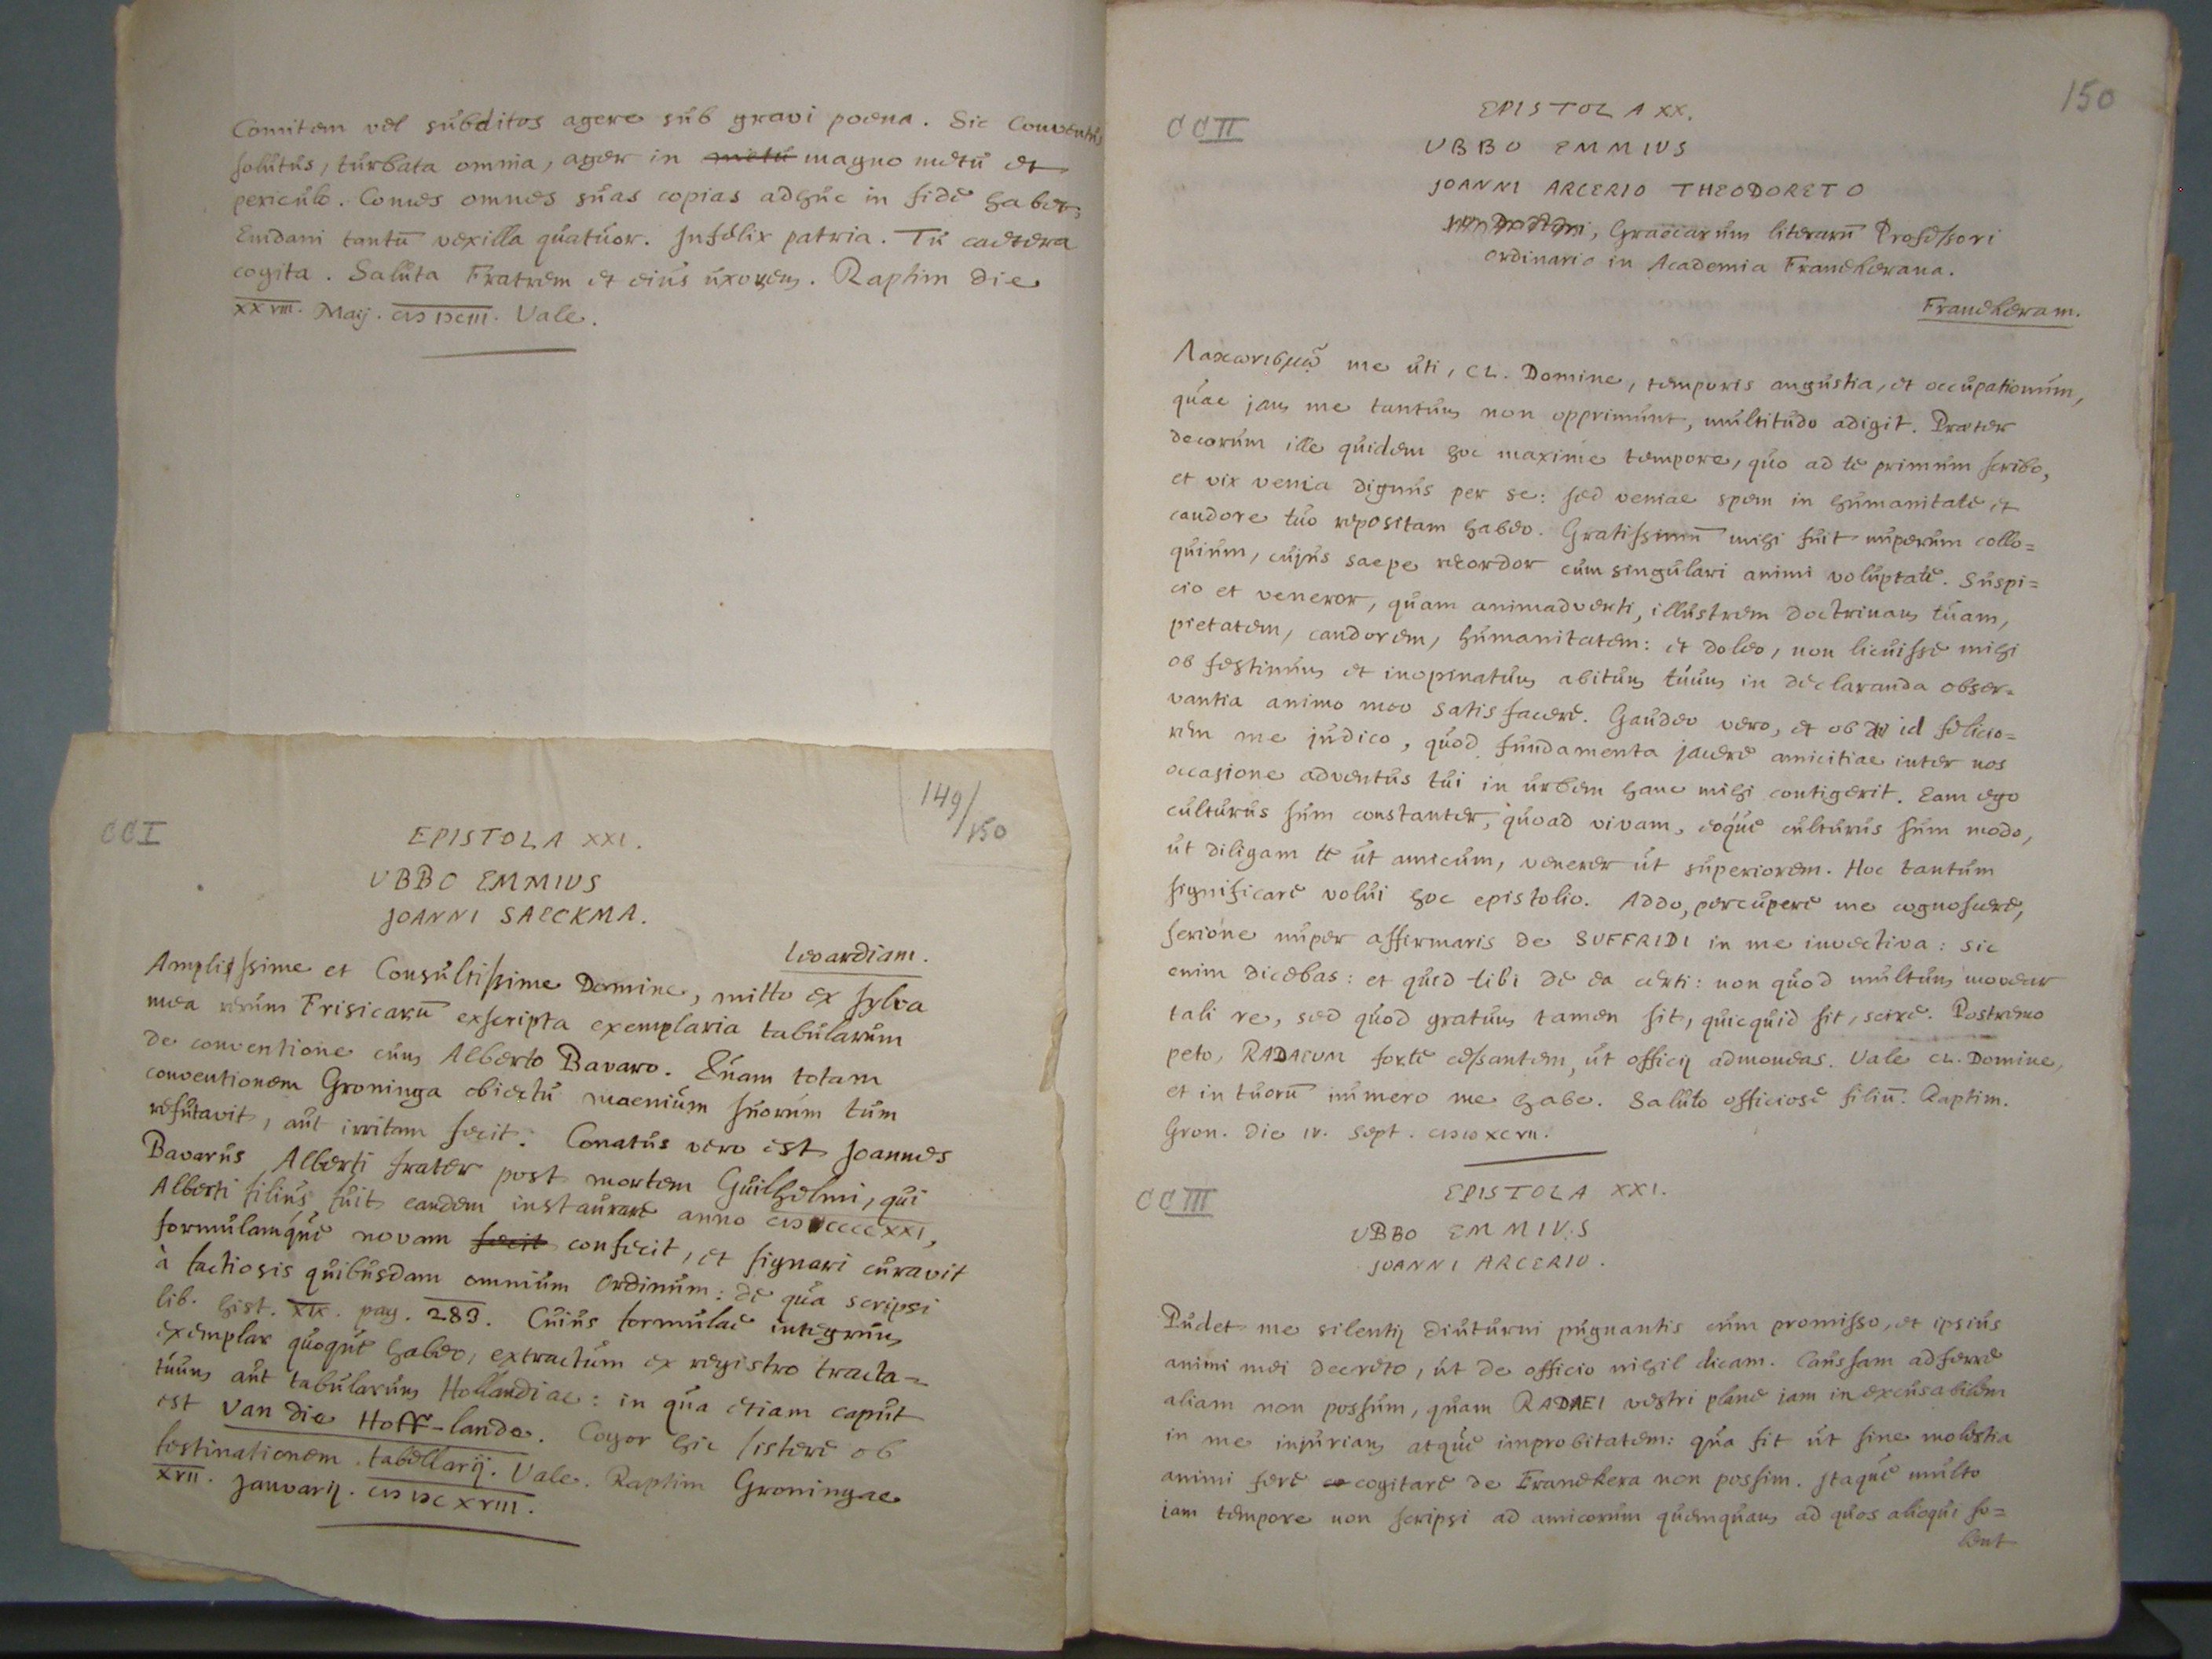 Comitem vel subditos agere sub gravi poena. Sic Conventus
solutus, turbata omnia, ager in metu magno metu et
periculo. Comes omnes suas copias adhuc in fide habet,
Emdani tantū vexilla quatuor. Infelix patria. Tu caetera
cogita. Saluta Fratrem et eius uxorem. Raphim die
XXVIII. Maij. CIↃ IↃCIII. Vale.
149/150
CCI
EPISTOLA XXI.
UBBO EMMIUS
JOANNI SAECKMA.
Levardiam.
Amplissime et Consultissime Domine, mitto ex sylva
mea rerum Frisicarū exscripta exemplaria tabularum
de conventione cum Alberto Bavaro. Quam totam
conventionem Groninga obiectu maenium suorum tum
refutavit, aut irritam fecit. Conatus vero est Joannes
Bavarus, Alberti frater post mortem Guilhelmi, qui
Alberti filius fuit eandem instaurare anno CIↃCCCCXXI,
formulamque novam fecit confecit, et signari curavit
à factiosis quibusdam omnium Ordinum: de qua scripsi
lib. hist. XIX. pag. 283. Cuius formulae integrum
exemplar quoque habeo, extractum ex registro tracta=
tuum aut tabularum Hollandiae: in qua etiam caput
est van die Hoff-lande. Cogor hic sistere ob
festinationem tabellarij. Vale. Raptim Groningae
XVII. Januarij. CIↃ IↃC XVIII.
150
CCII
EPISTOLA XX.
UBBO EMMIUS
JOANNI ARCERIO THEODORETO
Graecarum literarū Professori
ordinario in Academia Franekerana.
Franekeram.
Λακωνισμῷ me uti, CL. Domine, temporis angustia, et occupationum,
quae jam me tantum non opprimunt, multitudo adigit. Praeter
decorum ille quidem hoc maxime tempore, quo ad te primum scribo,
et vix venia dignus per se: sed veniae spem in humanitate et
candore tuo repositam habeo. Gratissimū mihi fuit nuperum collo=
quium, cujus saepe recordor cum singulari animi voluptate. Suspi=
cio et veneror, quam animadverti, illustrem doctrinam tuam,
pietatem, candorem, humanitatem: et doleo, non licuisse mihi
ob festinum et inopinatum abitum tuum in declaranda obser=
vantia animo meo satisfacere. Gaudeo vero, et ob id felicio=
rem me judico, quod fundamenta jacere amicitiae inter nos
occasione adventus tui in urbem hanc mihi contigerit. Eam ego
culturus sum constanter, quoad vivam, eoque culturus sum modo,
ut diligam te ut amicum, venerer ut superiorem. Hoc tantum
significare volui hoc epistolio. Addo, percupere me cognoscere,
serione nuper affirmaris de SUFFRIDI in me invectiva: sic
enim dicebas: et quid tibi de ea certi: non quod multum movear
tali re, sed quod gratum tamen sit, quicquid sit, scire. Postremo
peto, RADAEUM forte cessantem, ut officij admoneas. Vale CL. Domine,
et in tuorū numero me habe. Saluto officiose filiū. Raptim.
Gron. die IV. Sept. CIↃ IↃ XCVII.
CCIII
EPISTOLA XXI.
UBBO EMMIUS
JOANNI ARCERIO.
Pudet me silentij diuturni pugnantis cum promisso, et ipsius
animi mei decreto, ut de officio nihil dicam. Caussam adferre
aliam non possum, quam RADAEI vestri plane jam inexcusabilem
in me injuriam atque improbitatem: qua fit ut sine molestia
animi fere cogitare de Franekera non possim. Itaque multo
jam tempore non scripsi ad amicorum quemquam ad quos alioqui so=
lent